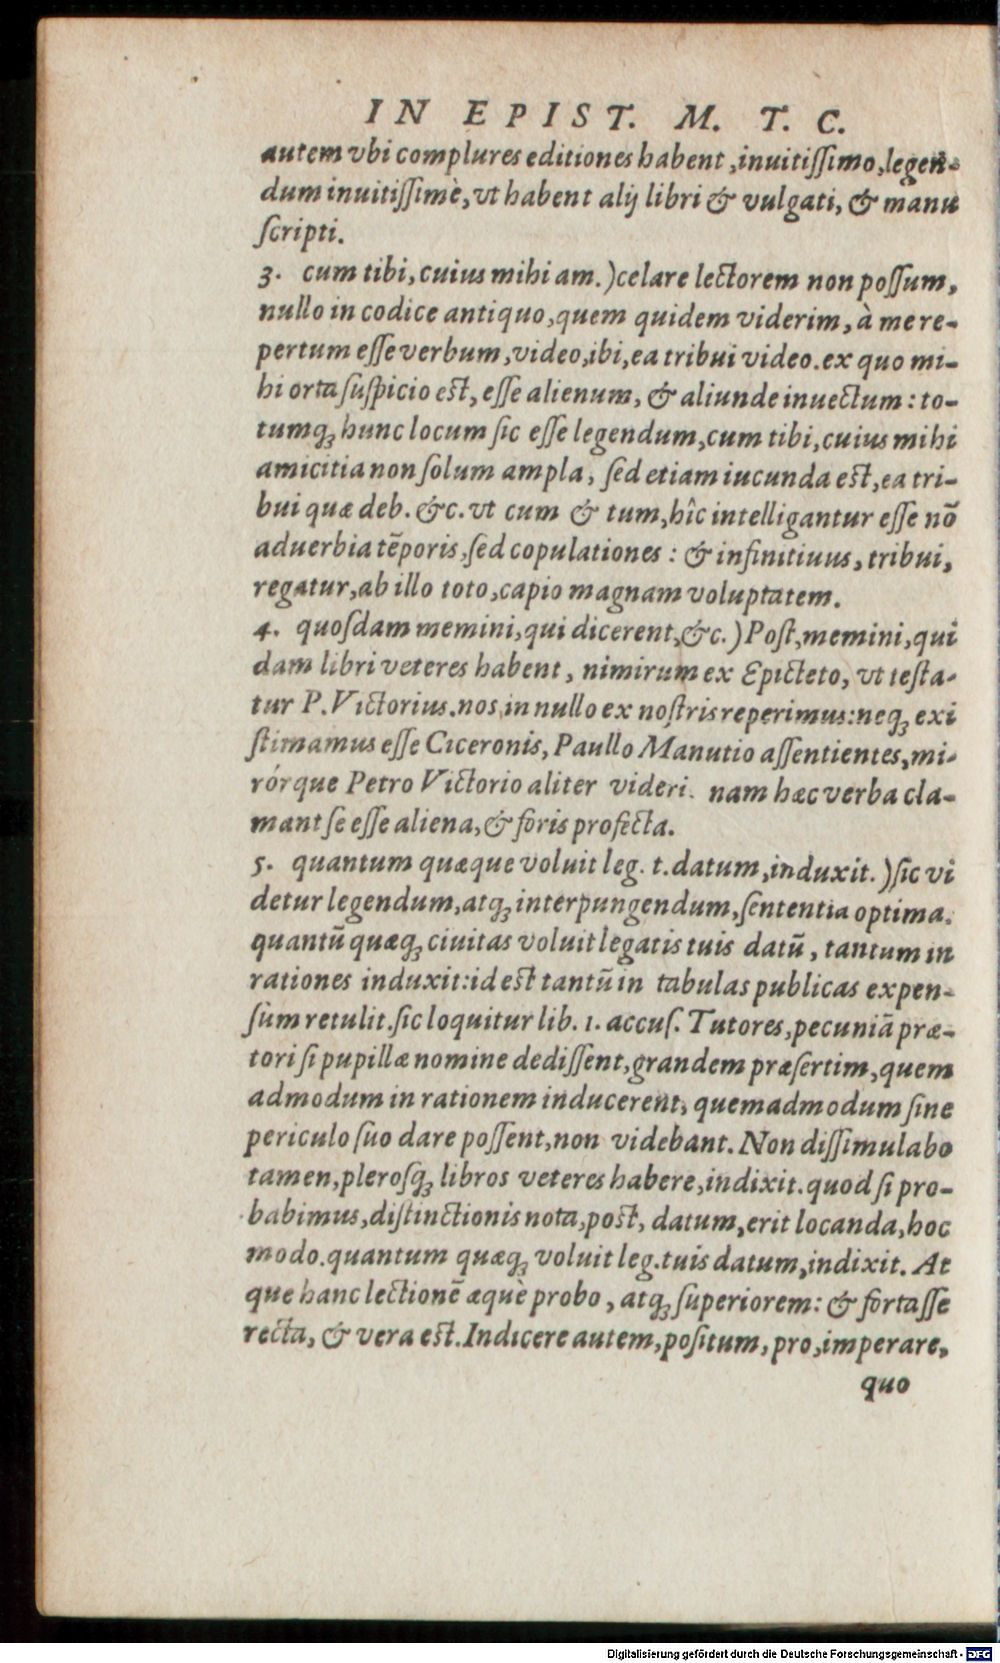 IN EPIST. M. T. C.
autem vbi complures editiones habent, inuitiſſimo, legen-
dum inuitiſſimè, vt habent alij libri & vulgati, & manu
ſcripti.
3. cum tibi, cuius mihi am.) celare lectorem non poſſum,
nullo in codice antiquo, quem quidem viderim, à me re-
pertum eſſe verbum, video, ibi, ea tribui video. ex quo mi-
hi orta ſuſpicio est, eſſe alienum, & aliunde inuectum: to-
tumq; hunc locum ſic eſſe legendum, cum tibi, cuius mihi
amicitia non ſolum ampla, ſed etiam iucunda est, ea tri-
bui quæ deb. &c. vt cum & tum, hîc intelligantur eſſe nō
aduerbia tēporis, ſed copulationes: & infinitiuus, tribui,
regatur, ab illo toto, capio magnam voluptatem.
4. quoſdam memini, qui dicerent, &c.) Poſt, memini, qui
dam libri veteres habent, nimirum ex Epicteto, vt teſta-
tur P. Victorius. nos in nullo ex noſtris reperimus: neq; exi
ſtimamus eſſe Ciceronis, Paullo Manutio aſſentientes, mi-
rórque Petro Victorio aliter videri. nam hæc verba cla-
mant ſe eſſe aliena, & foris profecta.
5. quantum quæque voluit leg. t. datum, induxit.) ſic vi
detur legendum, atq; interpungendum, ſententia optima.
quantū quæq; ciuitas voluit legatis tuis datū, tantum in
rationes induxit: id est tantū in tabulas publicas expen-
ſum retulit. ſic loquitur lib. 1. accuſ. Tutores, pecuniā præ-
tori ſi pupillæ nomine dediſſent, grandem præſertim, quem
admodum in rationem inducerent, quemadmodum ſine
periculo ſuo dare poſſent, non videbant. Non diſſimulabo
tamen, pleroſq; libros veteres habere, indixit. quod ſi pro-
babimus, diſtinctionis nota, post, datum, erit locanda, hoc
modo. quantum quæq; voluit leg. tuis datum, indixit. At
que hanc lectionē æquè probo, atq; ſuperiorem: & fortaſſe
recta, & vera est. Indicere autem, poſitum, pro, imperare,
quo
Digitalisierung gefördert durch die Deutsche Forschungsgemeinschaft - DFG